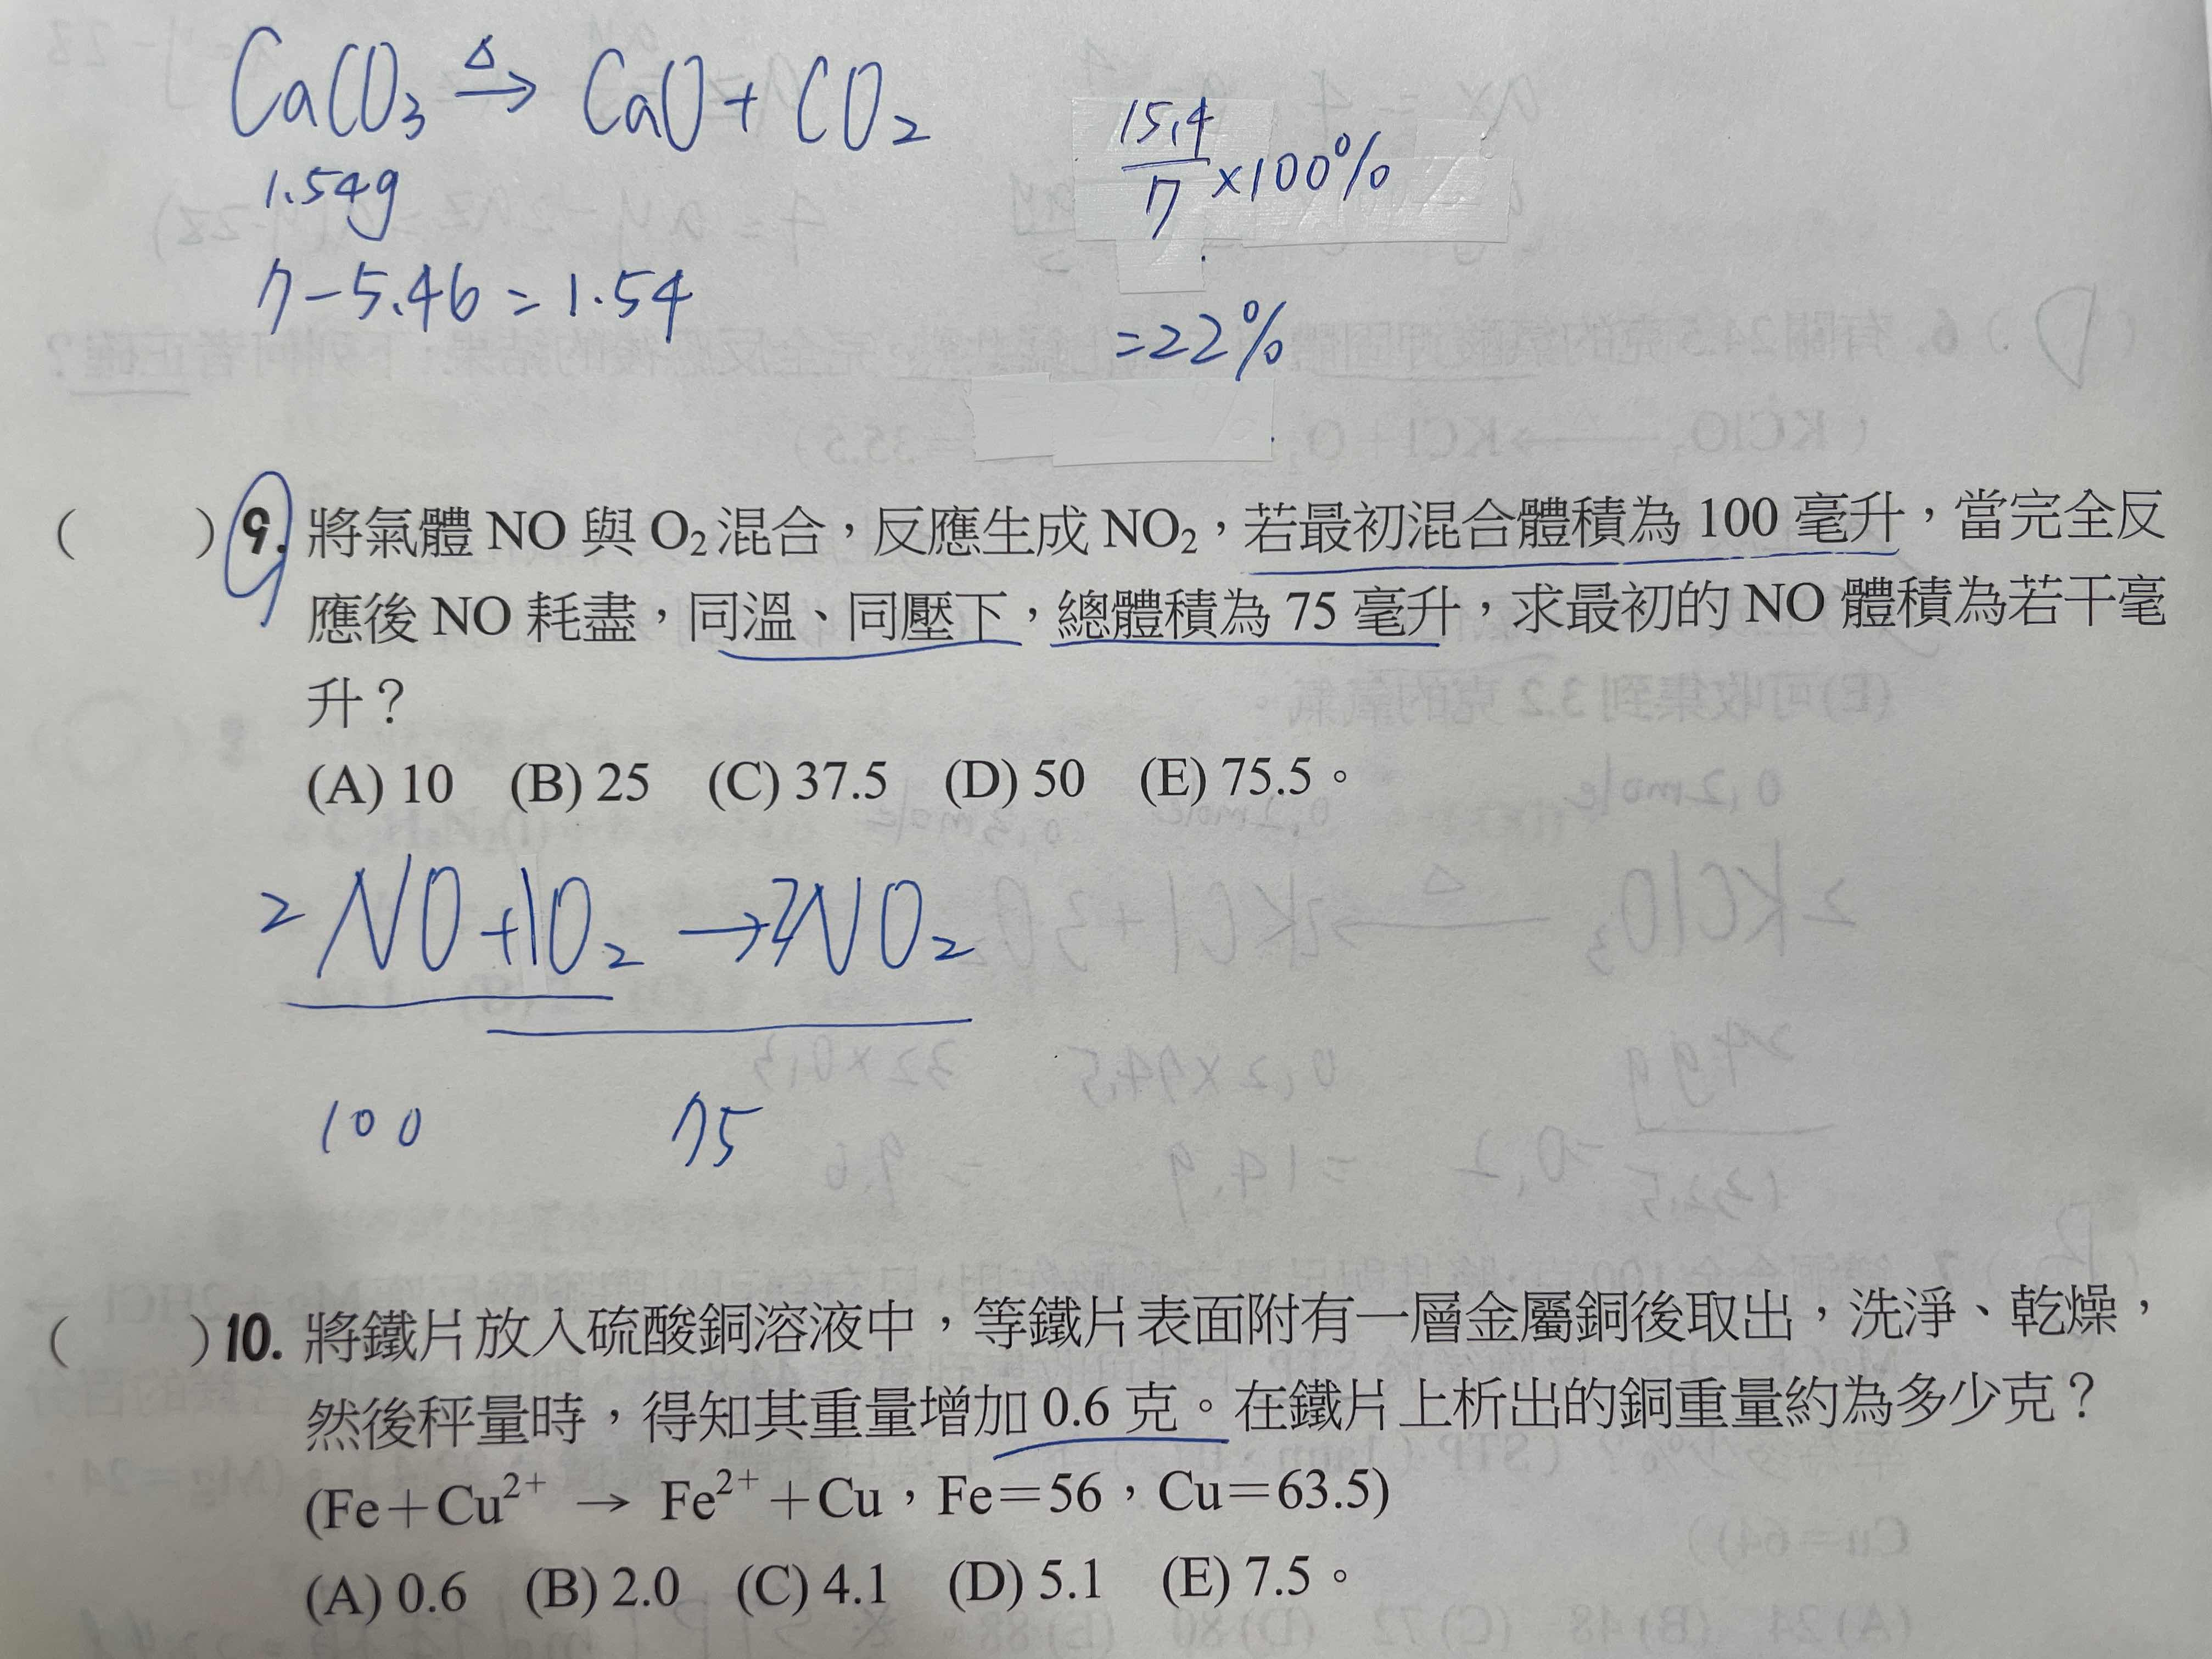 CaCO₃ →Δ CaO + CO₂
1.54g
7-5.46=1.54
15.4/7 ×100%
=22%
(　　)9. 將氣體 NO 與 O₂ 混合，反應生成 NO₂，若最初混合體積為 100 毫升，當完全反
應後 NO 耗盡，同溫、同壓下，總體積為 75 毫升，求最初的 NO 體積為若干毫
升？
(A) 10　(B) 25　(C) 37.5　(D) 50　(E) 75.5。
2NO+1O₂ →2NO₂
100　75
(　　)10. 將鐵片放入硫酸銅溶液中，等鐵片表面附有一層金屬銅後取出，洗淨、乾燥，
然後秤量時，得知其重量增加 0.6 克。在鐵片上析出的銅重量約為多少克？
(Fe＋Cu²⁺ → Fe²⁺＋Cu，Fe＝56，Cu＝63.5)
(A) 0.6　(B) 2.0　(C) 4.1　(D) 5.1　(E) 7.5。